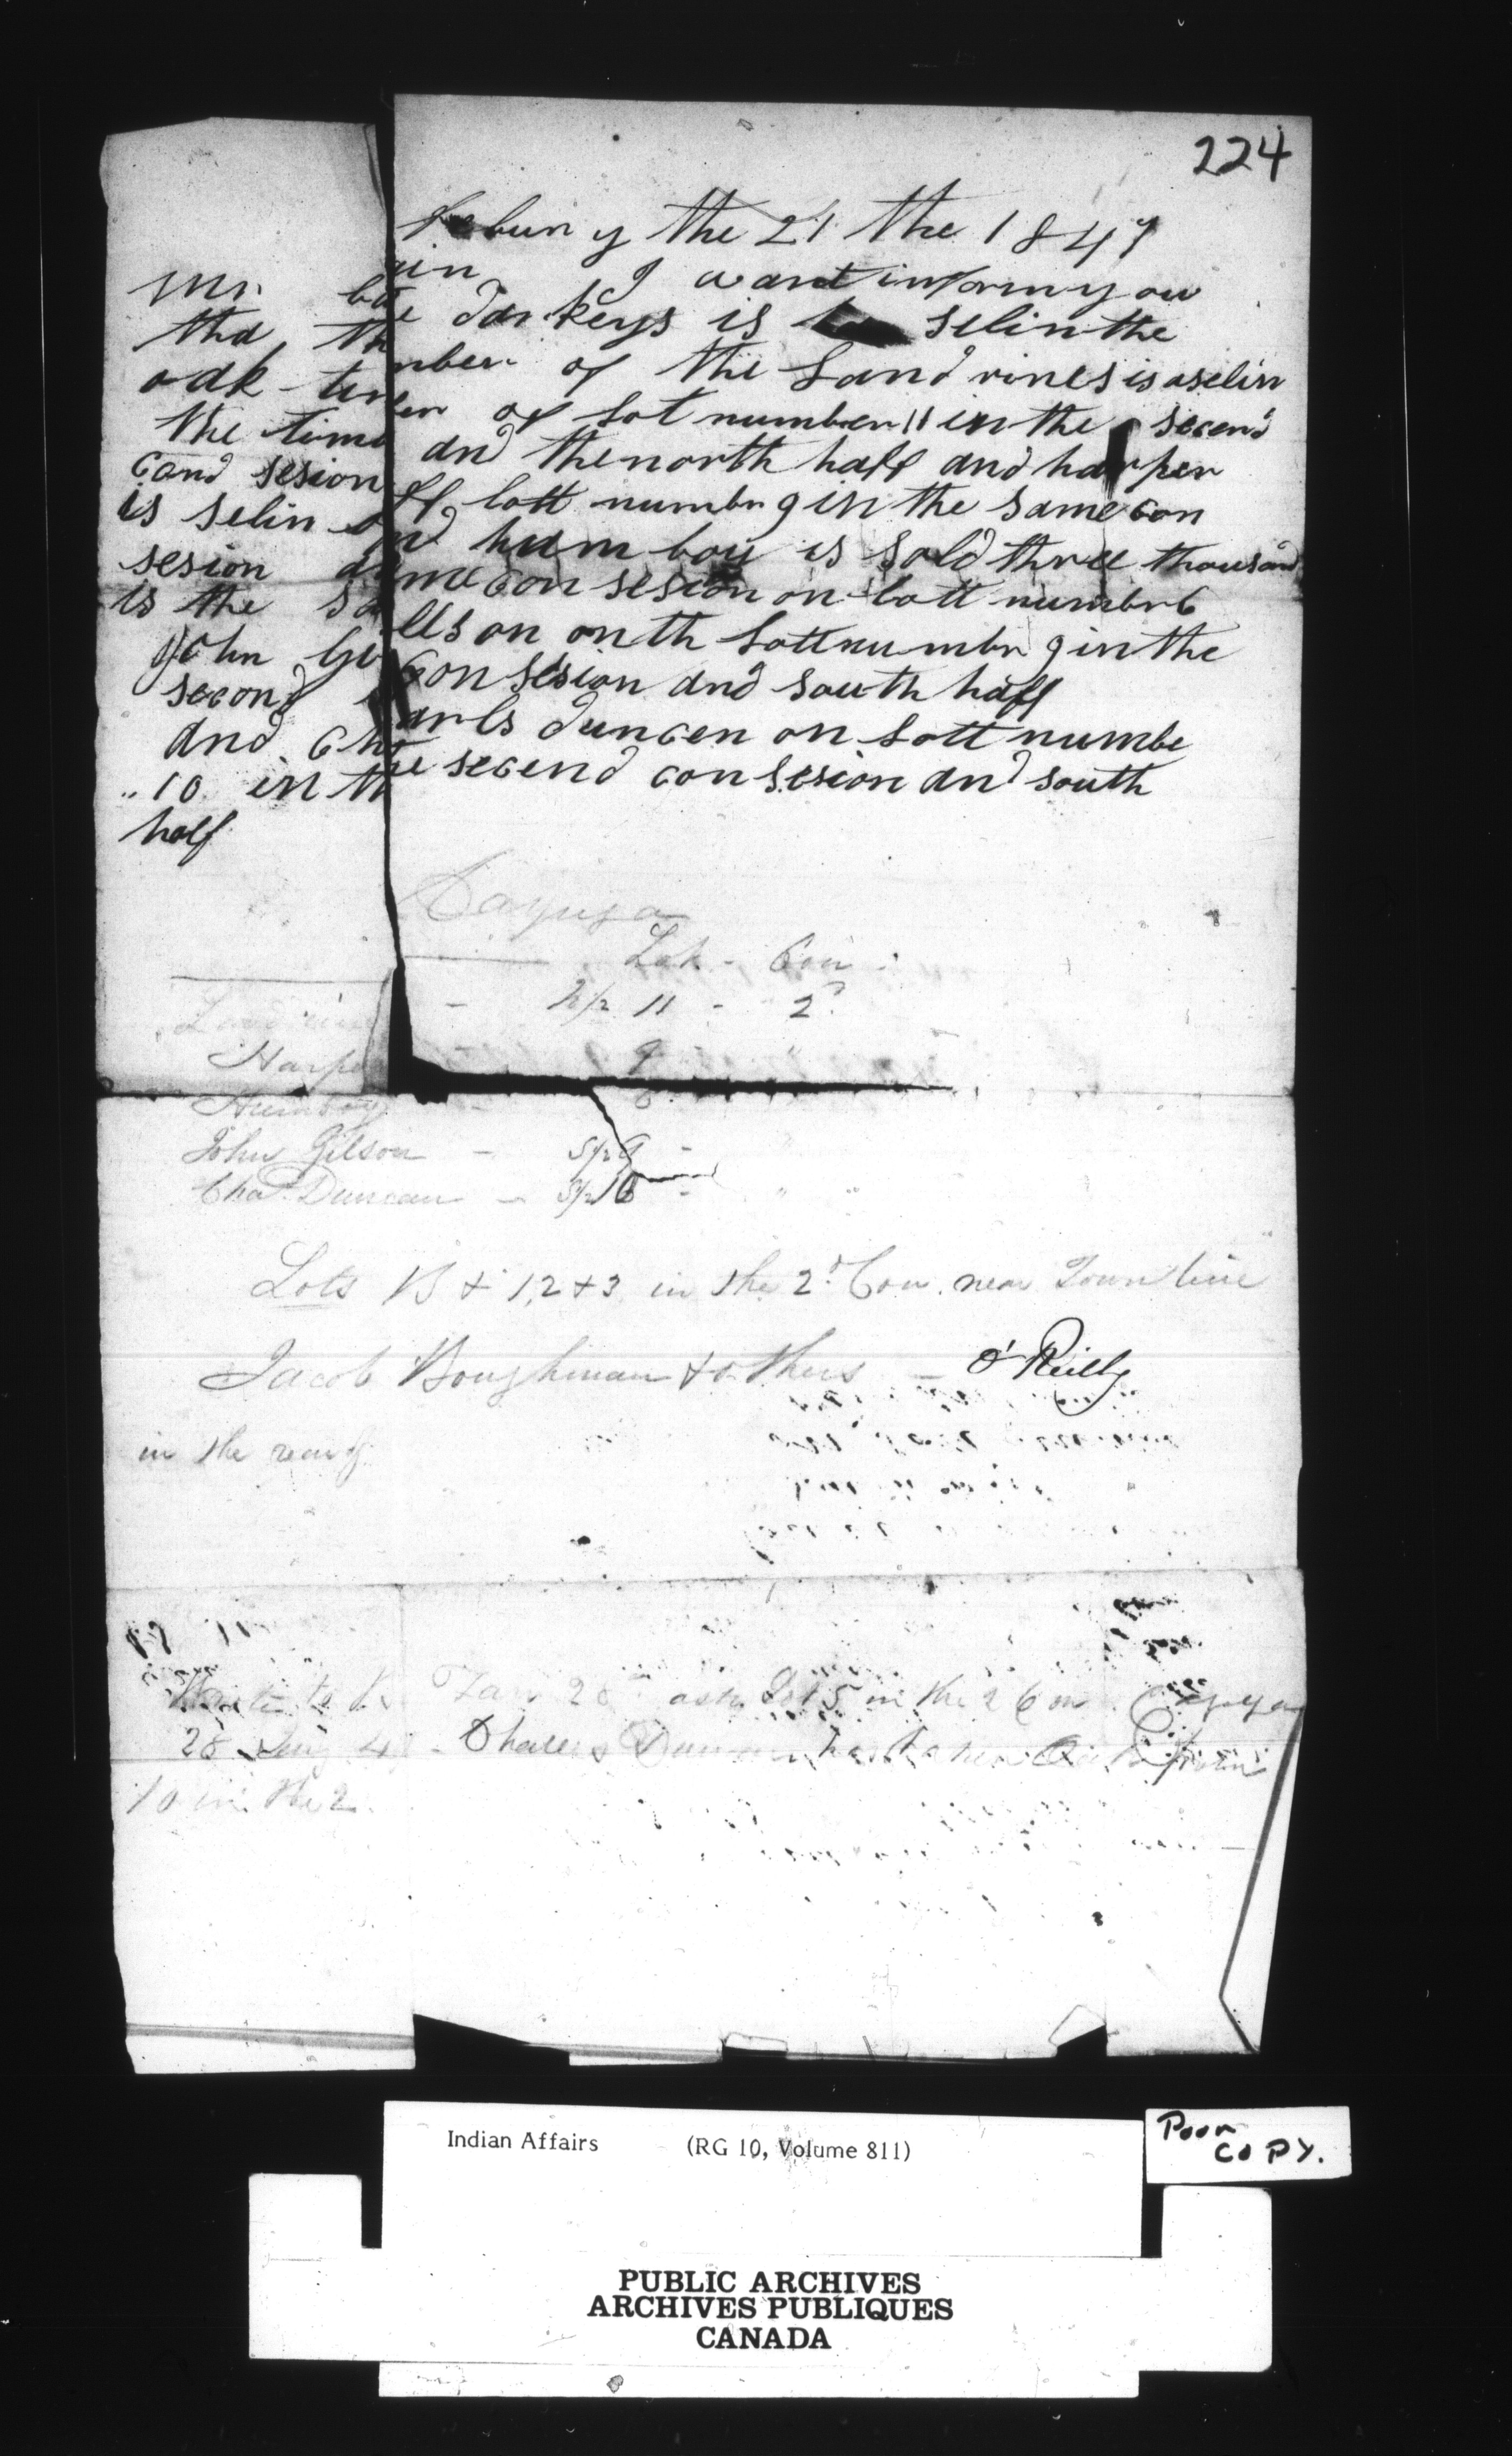 224
Febury the 21 the 1847
Mr. bain I want inform you
tha the darkeys is selin the
oak timber of the Land rines is aselin
the timber of Lot number 11 in the second
Consesion and the north half and harper
is selin off lott numbr 9 in the same con
sesion and hum boy is sold three thousand
is the same Con sesion on lott numbr 6
John Gillson on th Lott numbr 9 in the
second Con sesion and south half
and Charls duncen on Lott numbe
10 in the secend con sesion and south
half
Cayuga
Lot - Con :
Landrine - N/2 11 - 2d
Harper - 9 "
Humboy - 6
John Gilson - S/2 9 -
Chas Duncan - S/2 10 - " "
Lots B & 1, 2 & 3 in the 2d Con. near Town line
Jacob Boughman & others - O'Reilly
in the rear of
Jan 28 Lot 5 in the 2 Con Cayuga
28 Duncan has taken from
10 in the 2
Indian Affairs (RG 10, Volume 811)
Poor
COPY.
PUBLIC ARCHIVES
ARCHIVES PUBLIQUES
CANADA